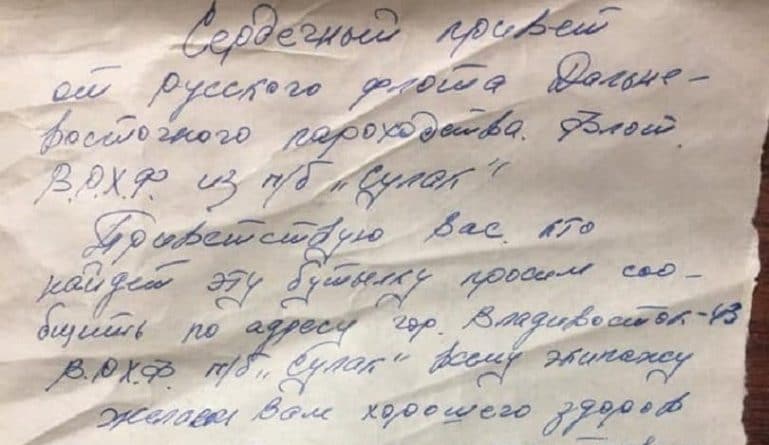 Сердечный привет
от русского флота Дальне-
восточного пароходства. Флот
В.О.Х.Ф. из п/б „Сулак"
Приветствую Вас кто
найдет эту бутылку просим соо-
бщить по адресу гор. Владивосток-43
В.О.Х.Ф. п/б „Сулак" всему экипажу
желаем Вам хорошего здоров